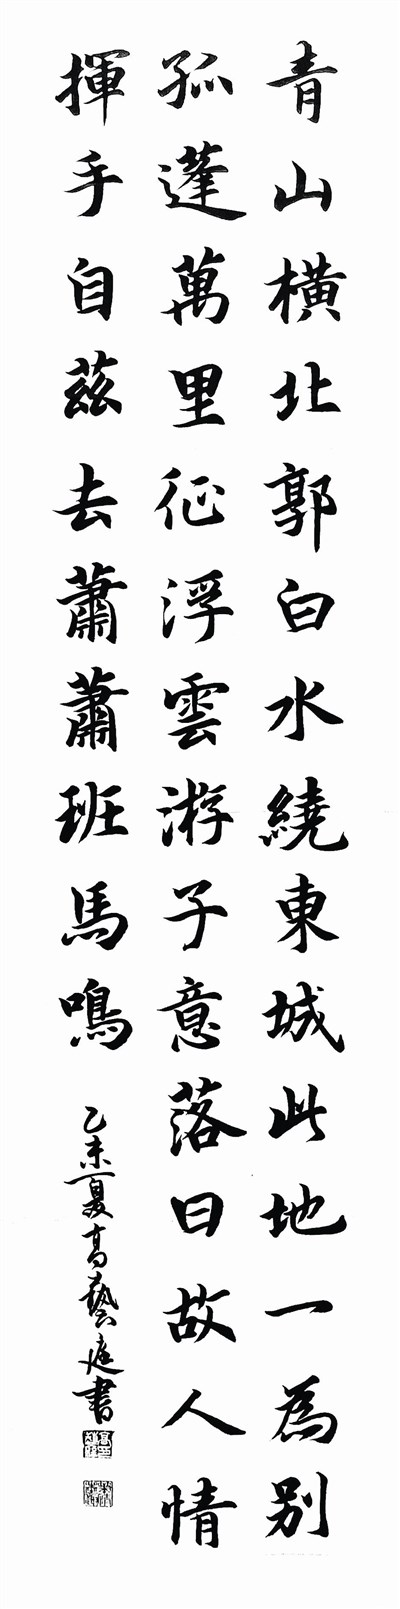 青山橫北郭白水繞東城此地一為別
孤蓬萬里征浮雲游子意落日故人情
揮手自茲去蕭蕭班馬鳴
乙未夏高藝庭書